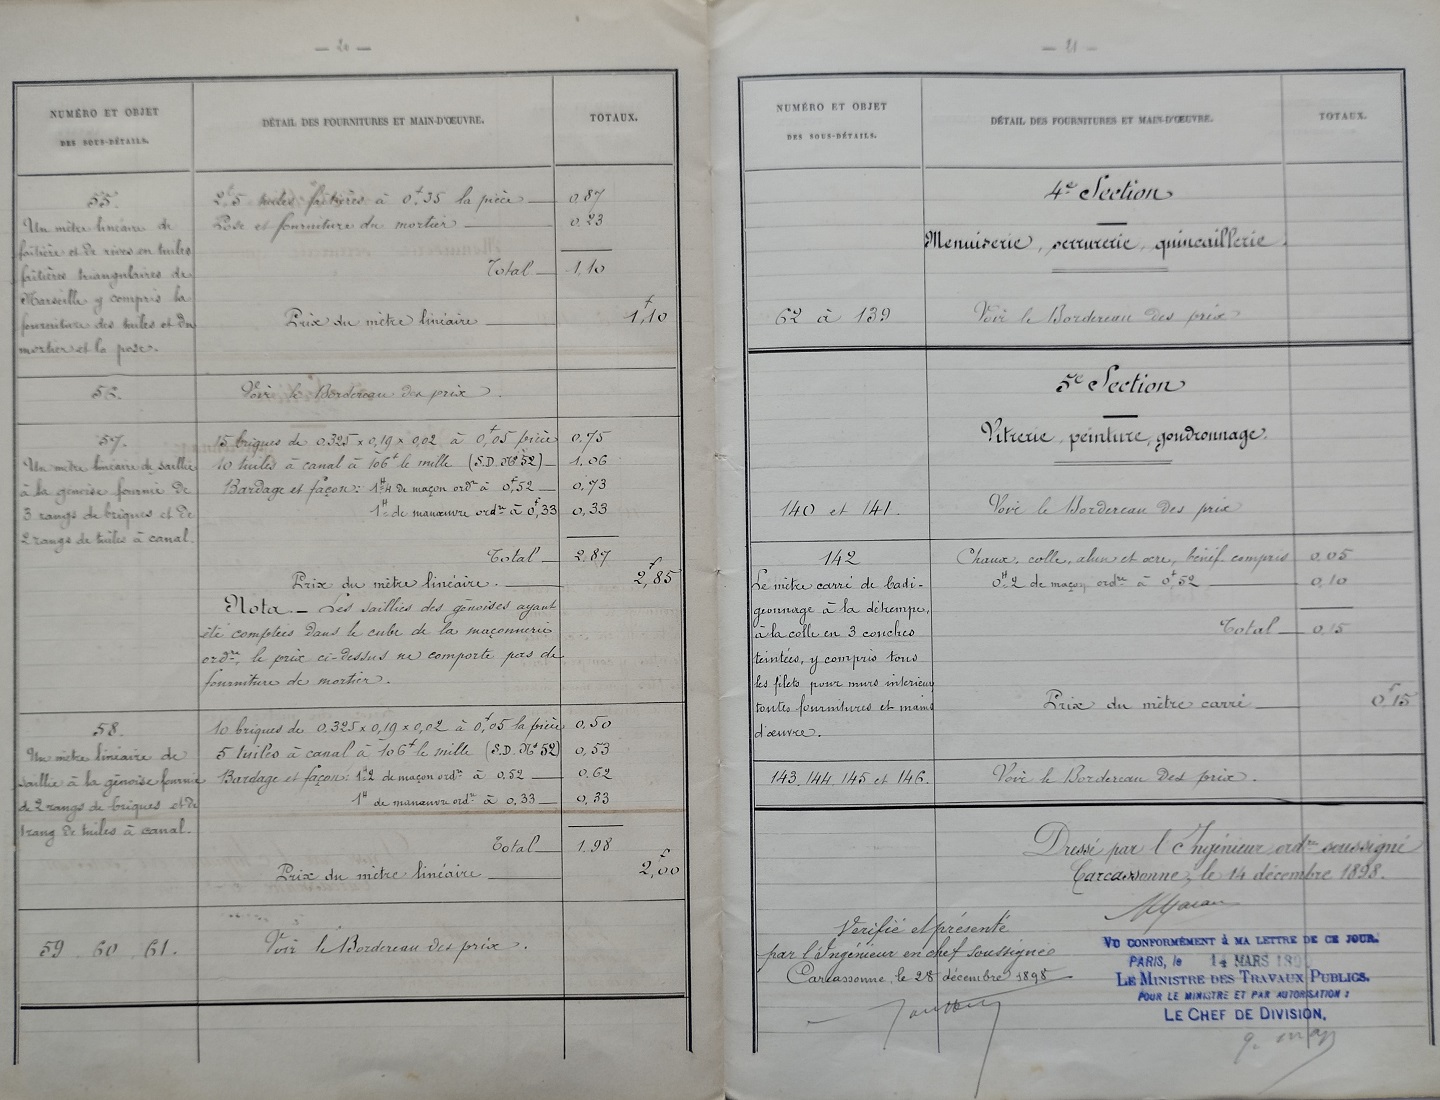 — 20 —
NUMÉRO ET OBJET
DES SOUS-DÉTAILS.
DÉTAIL DES FOURNITURES ET MAIN-D'ŒUVRE.
TOTAUX.
55.
Un mètre linéaire de
faîtière et de rives en tuiles
faîtières triangulaires de
Marseille y compris la
fourniture des tuiles et du
mortier et la pose.
2t,5 tuiles faîtières à 0f,35 la pièce 0,87
Pose et fourniture du mortier 0,23
Total 1,10
Prix du mètre linéaire 1f,10
56.
Voir le Bordereau des prix.
57.
Un mètre linéaire de saillie
à la génoise fournie de
3 rangs de briques et de
2 rangs de tuiles à canal.
15 briques de 0.325 x 0,19 x 0,02 à 0f,05 pièce 0,75
10 tuiles à canal à 106f le mille (S.D. N° 52) 1,06
Bardage et façon: 1H4 de maçon ordre à 0f,52 0,73
1H de manœuvre ordre à 0f,33 0,33
Total 2,87
Prix du mètre linéaire. 2f,85
Nota. — Les saillies des génoises ayant
été comptées dans le cube de la maçonnerie
ordre, le prix ci-dessus ne comporte pas de
fourniture de mortier.
58.
Un mètre linéaire de
saillie à la génoise fournie
de 2 rangs de briques et de
1 rang de tuiles à canal.
10 briques de 0.325 x 0,19 x 0,02 à 0f,05 la pièce 0,50
5 tuiles à canal à 106f le mille (S.D. N° 52) 0,53
Bardage et façon: 1H2 de maçon ordre à 0,52 0,62
1H de manœuvre ordre à 0,33 0,33
Total 1.98
Prix du mètre linéaire 2f,00
59. 60. 61.
Voir le Bordereau des prix.
— 21 —
NUMÉRO ET OBJET
DES SOUS-DÉTAILS.
DÉTAIL DES FOURNITURES ET MAIN-D'ŒUVRE.
TOTAUX.
4e Section
Menuiserie, serrurerie, quincaillerie.
62 à 139
Voir le Bordereau des prix
5e Section
Vitrerie, peinture, goudronnage.
140 et 141.
Voir le Bordereau des prix
142
Le mètre carré de badi-
geonnage à la détrempe,
à la colle en 3 couches
teintées, y compris tous
les filets pour murs intérieurs
toutes fournitures et main
d'œuvre.
Chaux, colle, alun et ocre, bénéf. compris 0,05
0H2 de maçon ordre à 0f52 0,10
Total 0,15
Prix du mètre carré 0f15
143, 144, 145 et 146.
Voir le Bordereau des prix.
Dressé par l'Ingénieur ordre soussigné
Carcassonne, le 14 décembre 1898.
Vérifié et présenté
par l'Ingénieur en chef soussigné
Carcassonne, le 28 décembre 1898
VU CONFORMÉMENT à MA LETTRE DE CE JOUR.
PARIS, le 14 MARS
LE MINISTRE DES TRAVAUX PUBLICS.
POUR LE MINISTRE ET PAR AUTORISATION:
LE CHEF DE DIVISION,